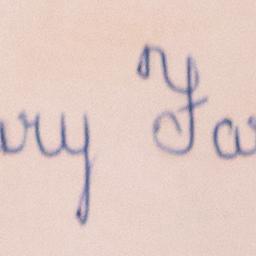 ary Fa